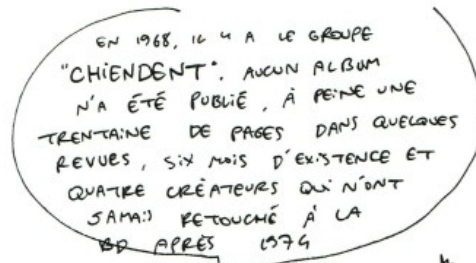 EN 1968, IL Y A LE GROUPE
"CHIENDENT". AUCUN ALBUM
N'A ÉTÉ PUBLIÉ, À PEINE UNE
TRENTAINE DE PAGES DANS QUELQUES
REVUES, SIX MOIS D'EXISTENCE ET
QUATRE CRÉATEURS QUI N'ONT
JAMAIS RETOUCHÉ À LA
BD APRÈS 1974